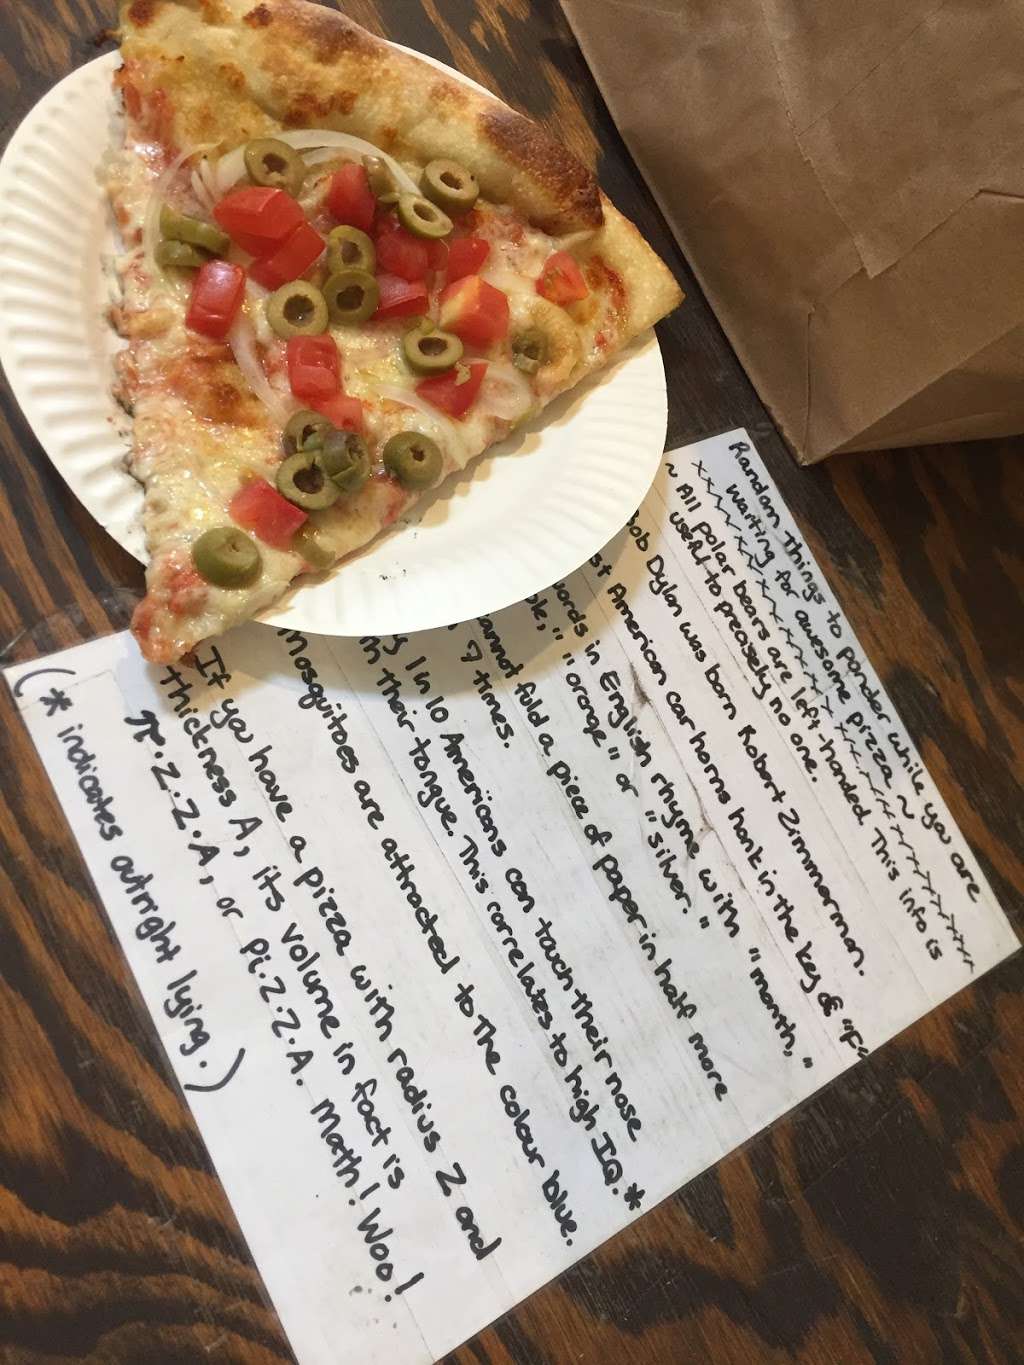 Random Things to ponder while you are
waiting for awesome pizza ~
xxxxxxxxxxxxxxxxxxxxxxxxxxxx
~ All polar bears are left-handed. This info is
useful to precisely no one.
Bob Dylan was born Robert Zimmerman.
st American car horns honk in the key of "F"
words in English rhyme with "month,"
ple," "orange" or "silver."
annot fold a piece of paper in half more
n 7 times.
y 1 in 10 Americans can touch their nose
ith their tongue. This correlates to high IQ.*
Mosquitoes are attracted to the colour blue.
If you have a pizza with radius Z and
thickness A, its volume in fact is
π.Z.Z.A, or Pi.Z.Z.A. Math! Woo!
(* indicates outright lying.)